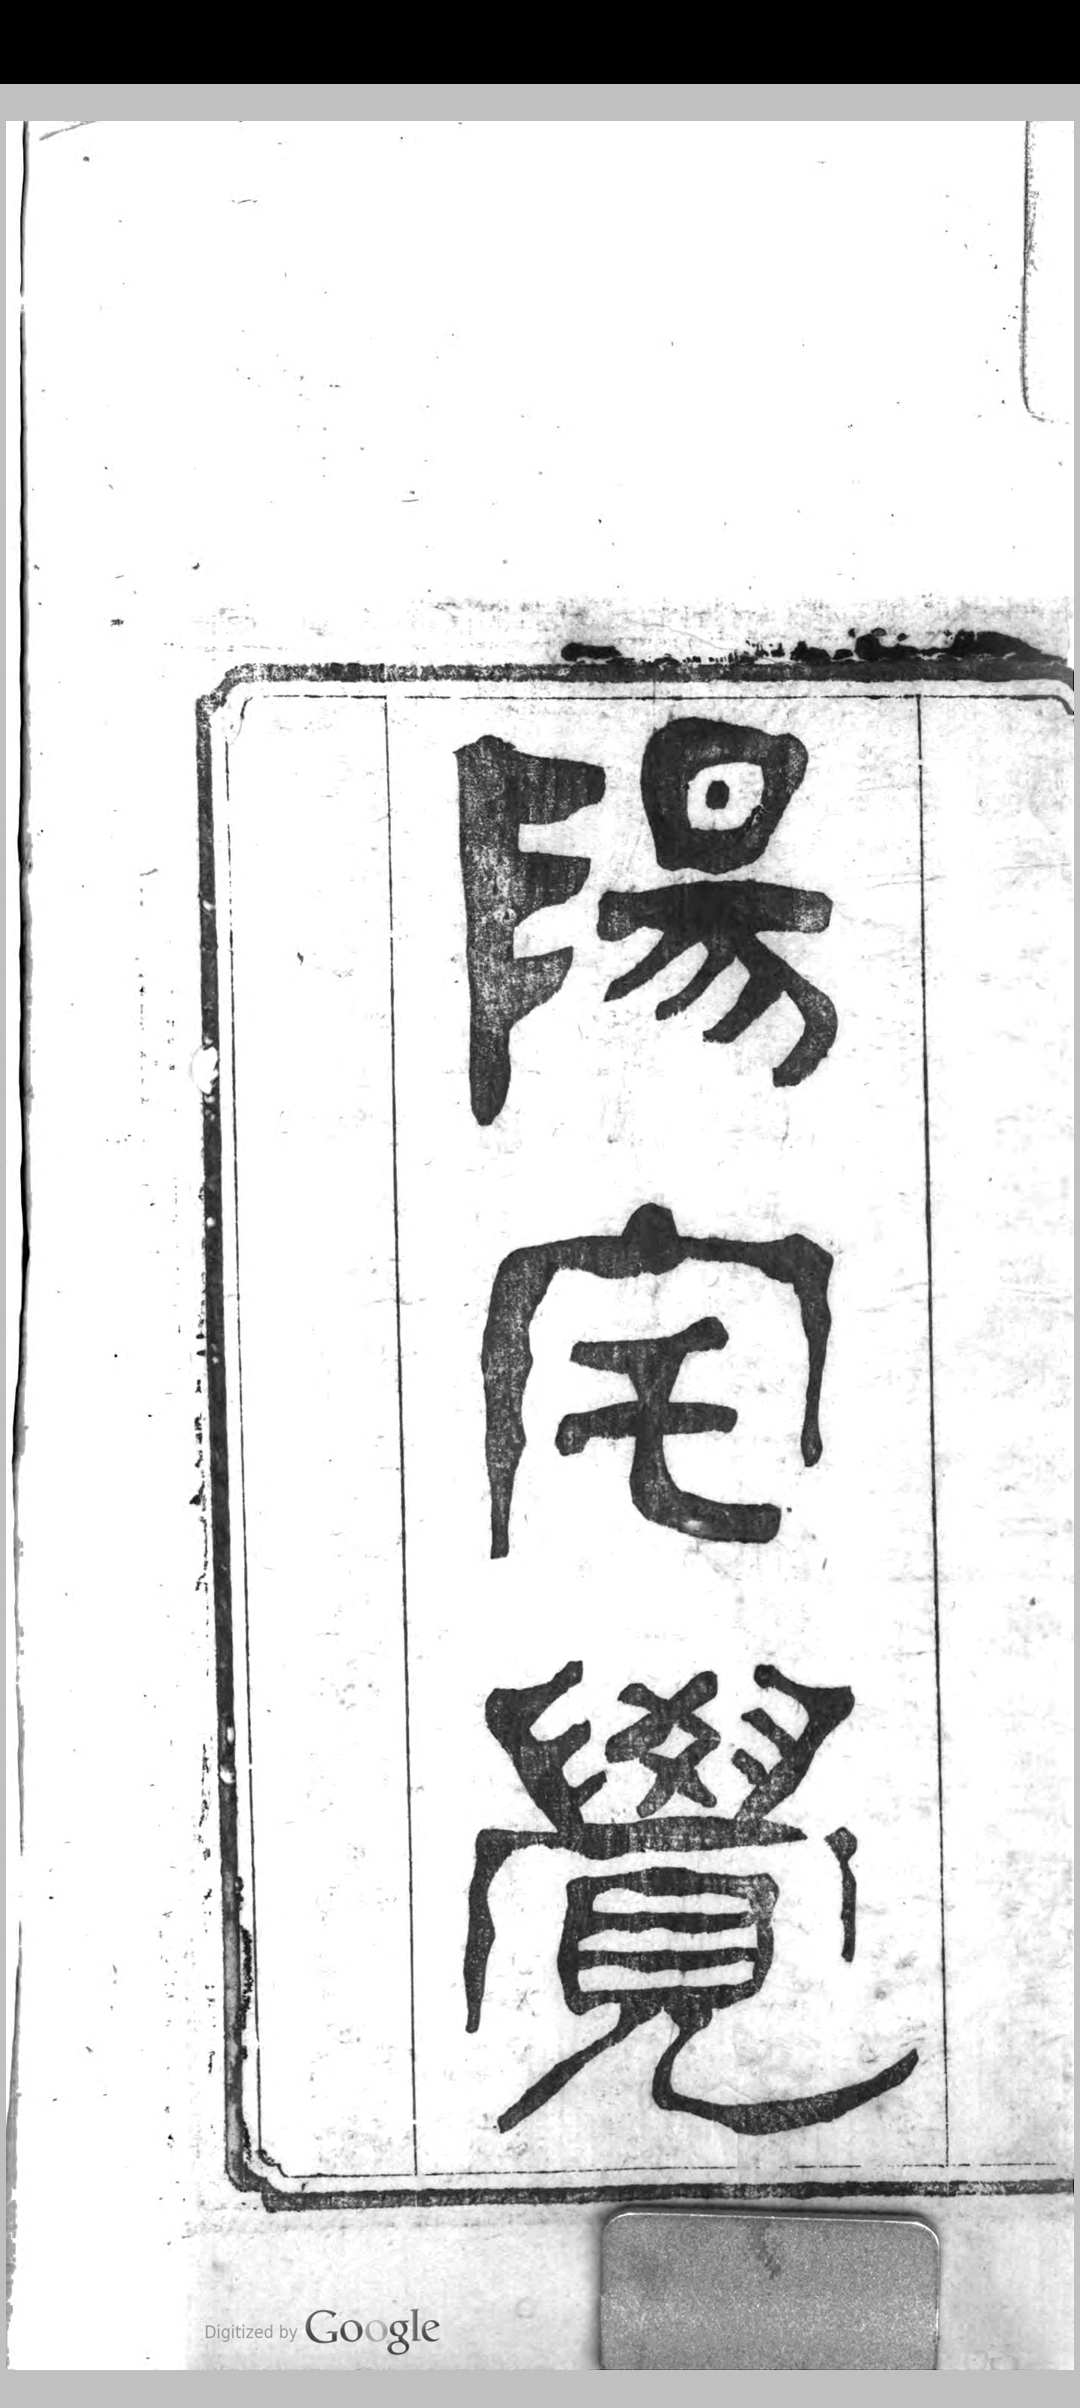 陽宅覺
Digitized by Google